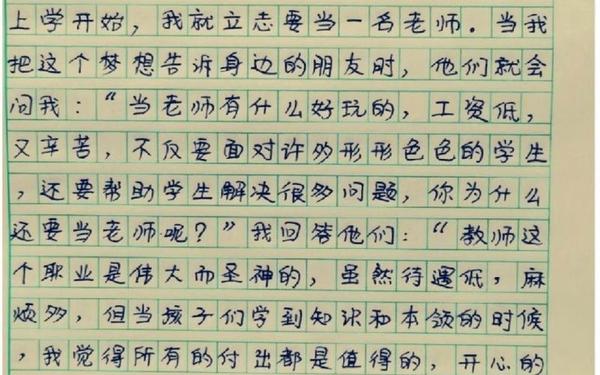 上学开始，我就立志要当一名老师。当我
把这个梦想告诉身边的朋友时，他们就会
问我：“当老师有什么好玩的，工资低，
又辛苦，不仅要面对许多形形色色的学生
，还要帮助学生解决很多问题，你为什么
还要当老师呢？”我回答他们：“教师这
个职业是伟大而圣神的，虽然待遇低，麻
烦多，但当孩子们学到知识和本领的时候
，我觉得所有的付出都是值得的，开心的